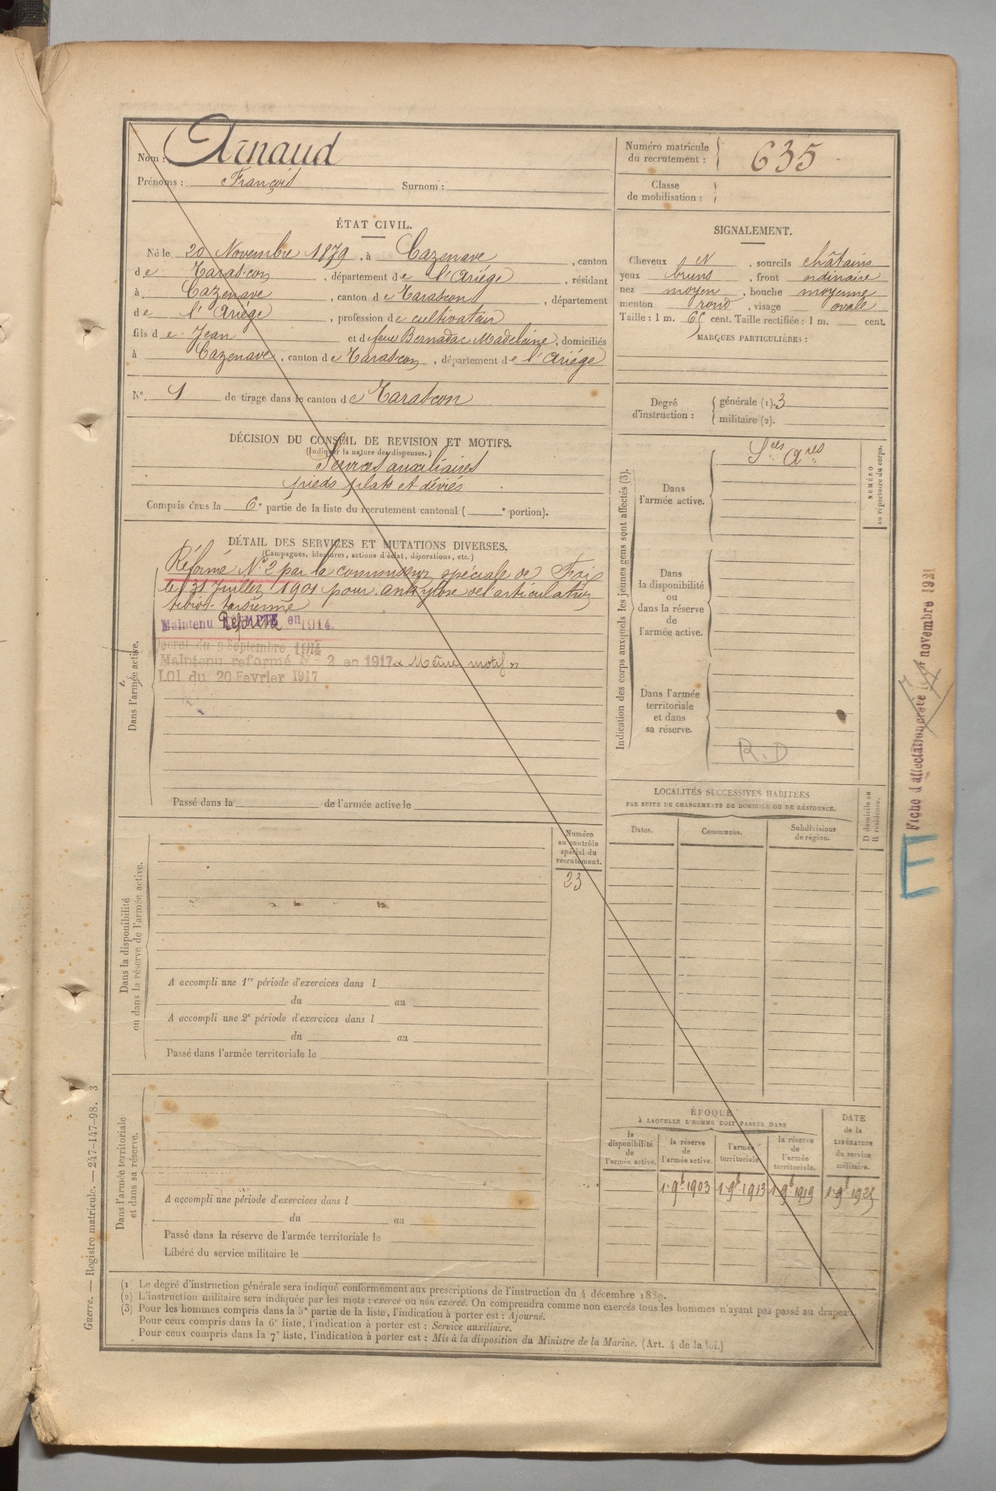 Nom : Arnaud
Prénoms : François Surnom :
Numéro matricule du recrutement : 635
Classe de mobilisation :
ÉTAT CIVIL.
Né le 20 Novembre 1879, à Cazenave, canton
de Tarascon, département de l'Ariége, résidant
à Cazenave, canton de Tarascon, département
de l'Ariége, profession de cultivateur
fils de Jean et de feue Bernadac Madelaine, domiciliés
à Cazenave, canton de Tarascon, département de l'Ariége
N° 1 de tirage dans le canton de Tarascon
SIGNALEMENT.
Cheveux N, sourcils châtains
yeux bruns, front ordinaire
nez moyen, bouche moyenne
menton rond, visage ovale
Taille : 1 m. 65 cent. Taille rectifiée : 1 m. cent.
MARQUES PARTICULIÈRES :
Degré d'instruction : générale (1). 3
militaire (2).
DÉCISION DU CONSEIL DE REVISION ET MOTIFS.
(Indiquer la nature des dispenses.)
Services auxiliaires
pieds plats et déviés
Compris dans la 6e partie de la liste du recrutement cantonal ( e portion).
DÉTAIL DES SERVICES ET MUTATIONS DIVERSES.
(Campagnes, blessures, actions d'éclat, décorations, etc.)
Réformé N° 2 par la commission spéciale de Foix
le 31 Juillet 1901 pour ankylose de l'articulation
tibio-tarsienne
Maintenu Réformé en 1914.
Décret du 9 Septembre 1914
Maintenu reformé N° 2 en 1917 « Même motif »
LOI du 20 Fevrier 1917
Dans l'armée active.
Passé dans la de l'armée active le
Indication des corps auxquels les jeunes gens sont affectés (3).
Sces Ares
Dans l'armée active.
Dans la disponibilité ou dans la réserve de l'armée active.
Dans l'armée territoriale et dans sa réserve.
R.D
NUMÉRO au répertoire du corps.
Fiche d'affectation créée 1er novembre 1921
E
LOCALITÉS SUCCESSIVES HABITÉES
PAR SUITE DE CHANGEMENTS DE DOMICILE OU DE RÉSIDENCE.
Dates. Communes. Subdivisions de région. D domicile ou R résidence.
Dans la disponibilité ou dans la réserve de l'armée active.
Numéro au contrôle spécial du recrutement.
23
A accompli une 1re période d'exercices dans l
du au
A accompli une 2e période d'exercices dans l
du au
Passé dans l'armée territoriale le
Dans l'armée territoriale et dans sa réserve.
A accompli une période d'exercices dans l
du au
Passé dans la réserve de l'armée territoriale le
Libéré du service militaire le
ÉPOQUE
À LAQUELLE L'HOMME DOIT PASSER DANS
la disponibilité de l'armée active. la réserve de l'armée active. l'armée territoriale. la réserve de l'armée territoriale. DATE de la LIBÉRATION du service militaire.
1 9bre 1903 1 9bre 1913 1 9bre 1919 1 9bre 1925
(1) Le degré d'instruction générale sera indiqué conformément aux prescriptions de l'instruction du 4 décembre 1889.
(2) L'instruction militaire sera indiquée par les mots : exercé ou non exercé. On comprendra comme non exercés tous les hommes n'ayant pas passé au drapeau.
(3) Pour les hommes compris dans la 5e partie de la liste, l'indication à porter est : Ajourné.
Pour ceux compris dans la 6e liste, l'indication à porter est : Service auxiliaire.
Pour ceux compris dans la 7e liste, l'indication à porter est : Mis à la disposition du Ministre de la Marine. (Art. 4 de la loi.)
Guerre. — Registre matricule. — 247-147-98. 3